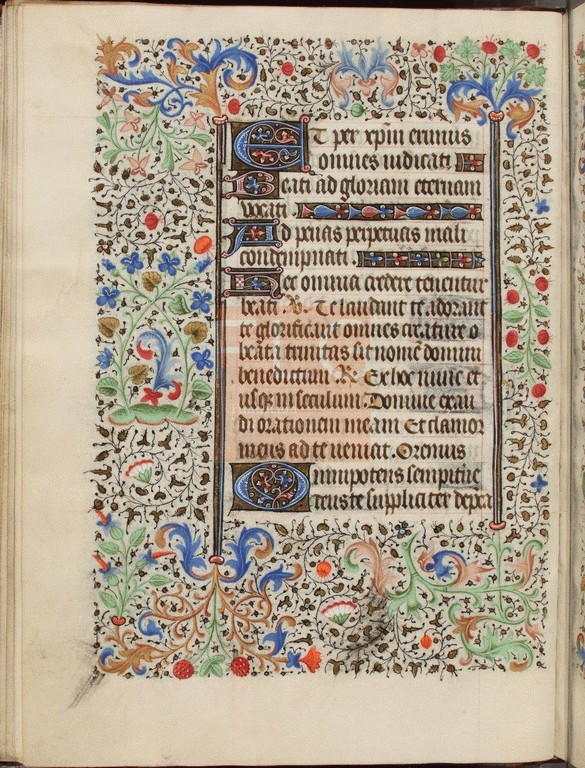 Et per xpm erimus
omnes iudicati
Beati ad gloriam eternam
vocati
Ad penas perpetuas mali
condempnati
Hec omnia credere tenentur
beati . V. Te laudant te adorant
te glorificant omnes creature o
beata trinitas sit nome domini
benedictum R. Ex hoc nunc et
usqz in seculum Domine exau
di orationem meam Et clamor
meus ad te veniat Oremus
Omnipotens sempiterne
te suppliciter depca